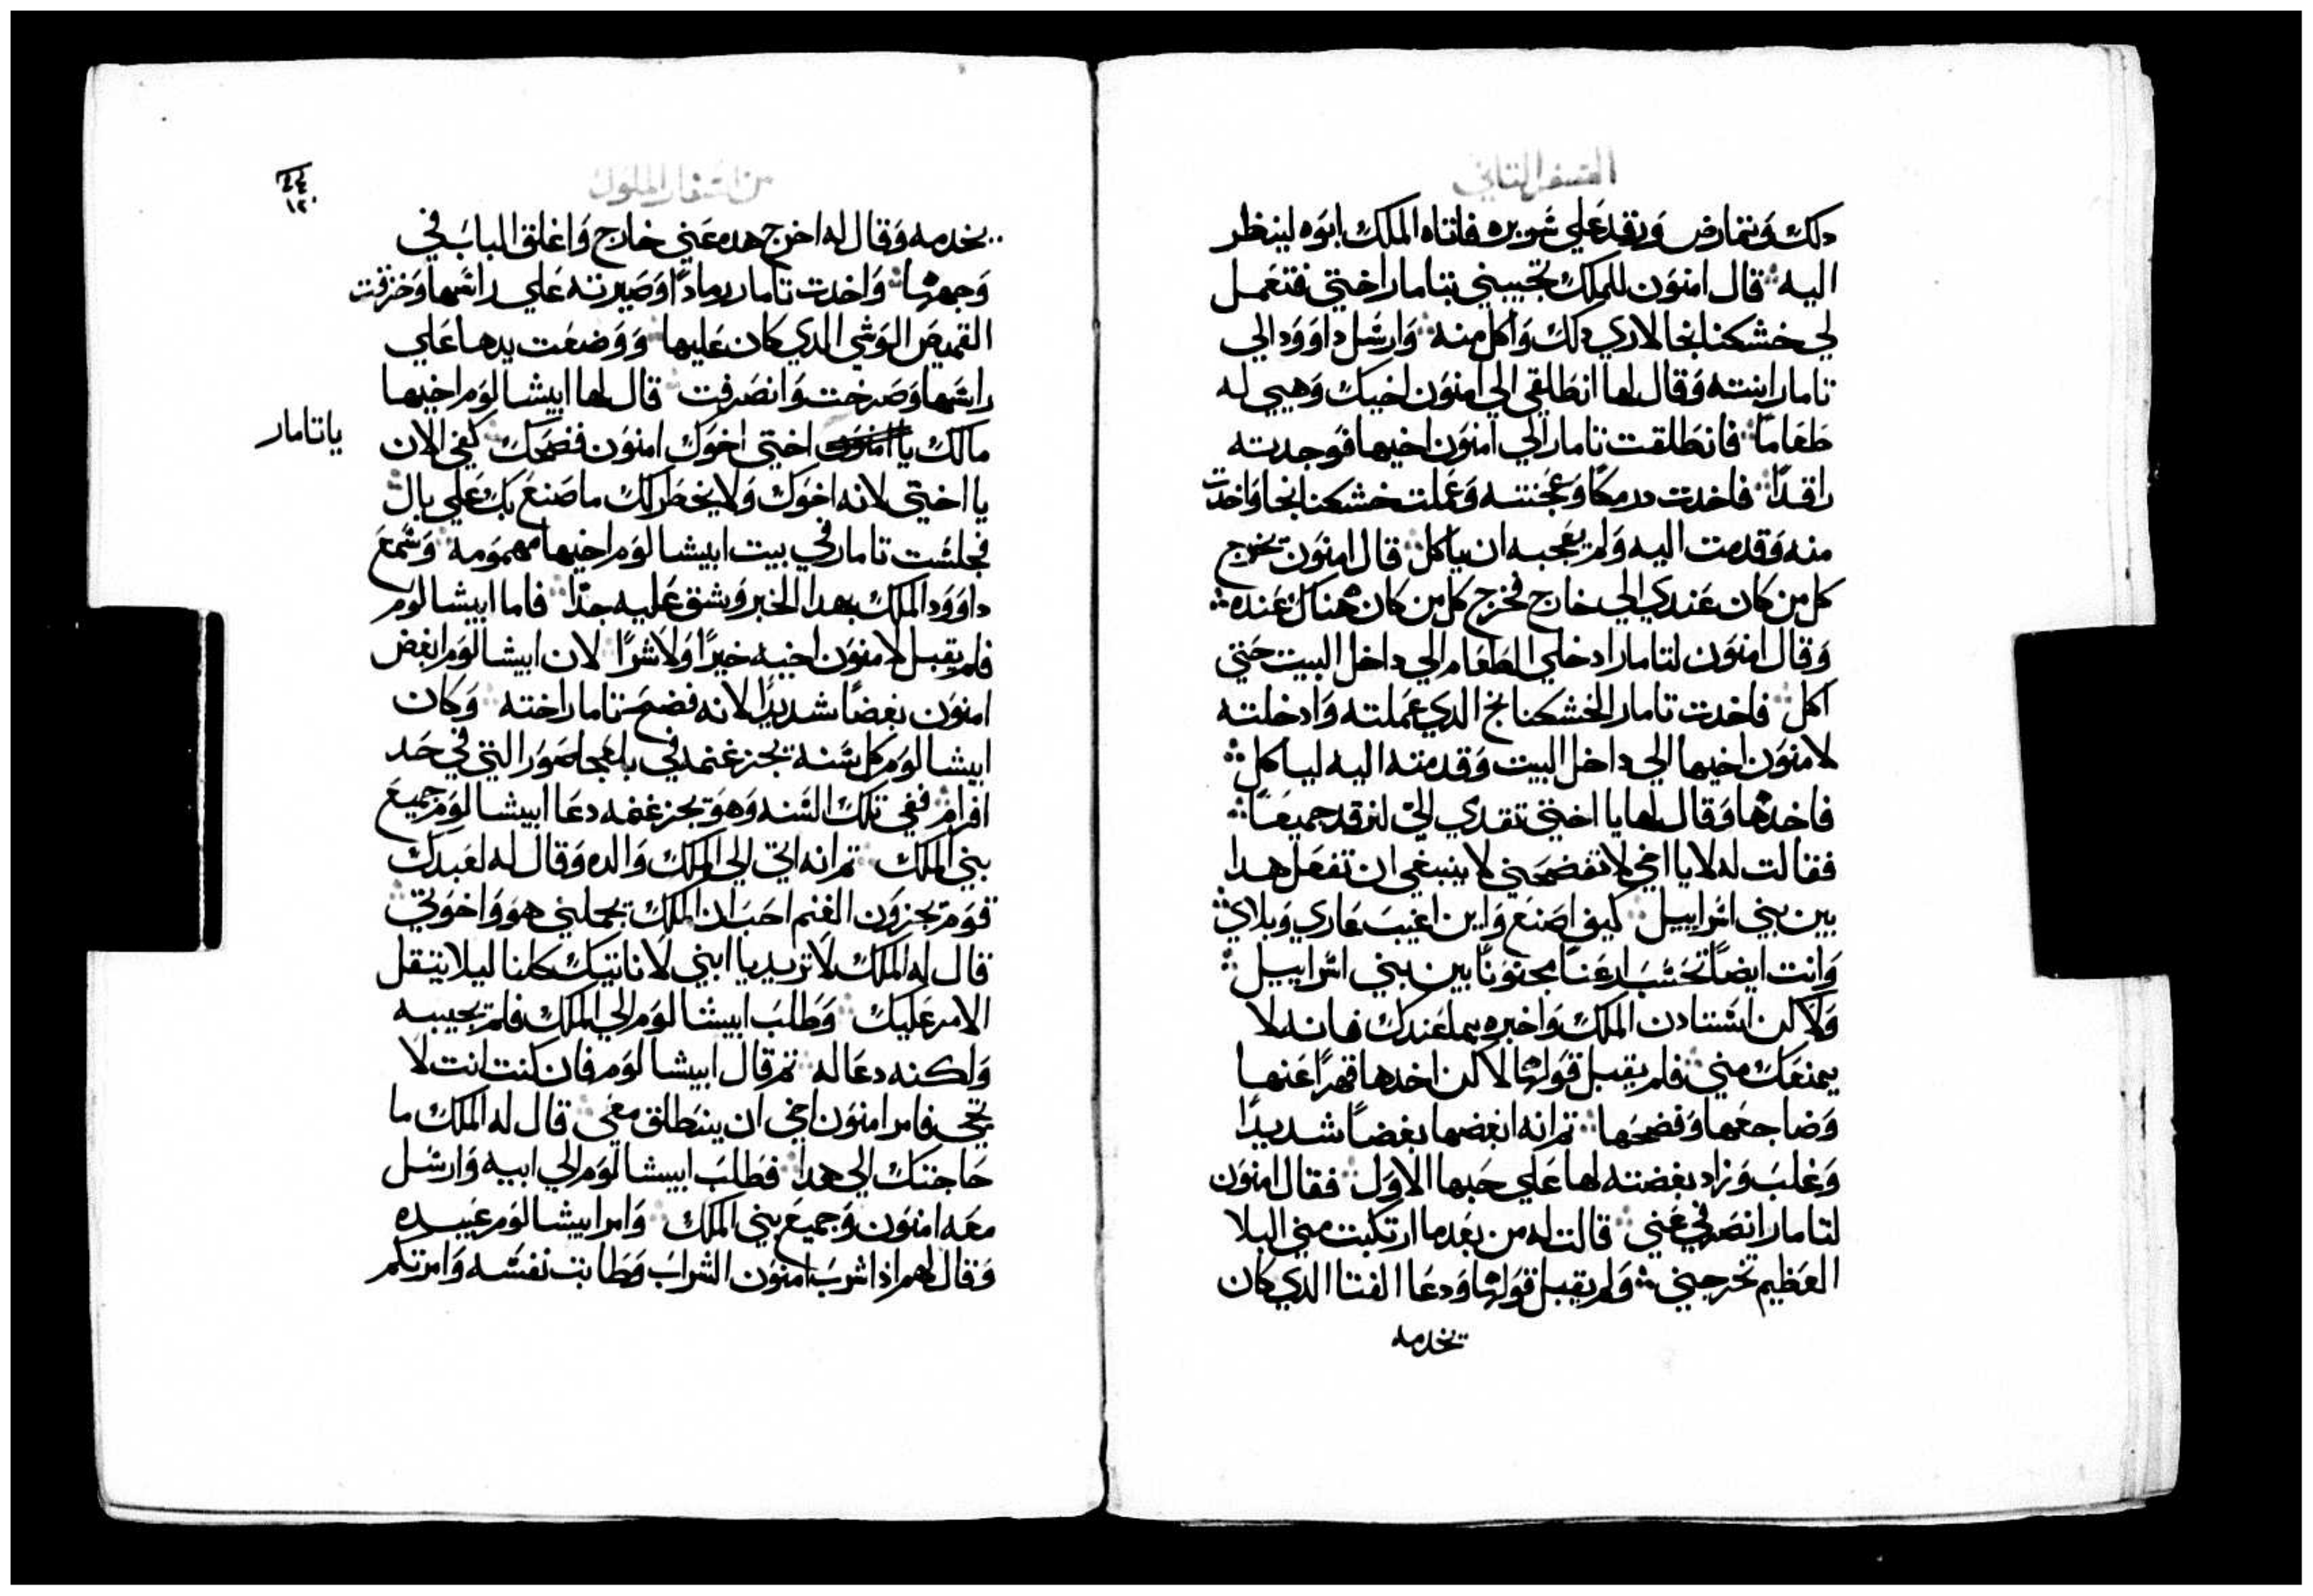 السفر التاني
دلك وتمارض ورقد علي سريره فاتاه الملك ابوه لينظر
اليه قال امنون للملك تجيبني بتامار اختي فتعمل
لي خشكنانجا لاري دلك واكل منه وارسل داوود الي
تامار ابنته وقال لها انطلقي الي امنون اخيك وهيي له
طعاما فانطلقت تامار الي امنون اخيها فوجدته
راقدا فاخدت درمكا وعجنته وعملت خشكنانجا واخدت
منه وقدمت اليه ولم يعجبه ان ياكل قال امنون تخرج
كل من كان عندي الي خارج فخرج كل من كان هناك عنده
وقال امنون لتامار ادخلي الطعام الي داخل البيت حتي
اكل فاخدت تامار الخشكنانج الدي عملته وادخلته
لامنون اخيها الي داخل البيت وقدمته اليه لياكل
فاخدها وقال لها يا اختي تقدي الي لنرقد جميعا
فقالت له لا يا اخي لا تفضحني لا ينبغي ان تفعل هدا
بين بني اسراييل كيف اصنع واين اغيب عاري وبلاي
وانت ايضا تحسب ارعنا مجنونا بين بني اسراييل
ولاكن استادن الملك واخبره بما عندك فانه لا
يمنعك مني فلم يقبل قولها لاكن اخدها قهرا عنها
وضاجعها وفضحها تم انه ابغضها بغضا شديدا
وغلب وزاد بغضته لها علي حبها الاول فقال امنون
لتامار انصرفي عني قالت له من بعد ما ارتكبت مني البلا
العظيم تخرجني ولم يقبل قولها ودعا الفتا الدي كان
يخدمه
من اسفار الملوك
يخدمه وقال له اخرج هده عني خارج واغلق الباب في
وجهها واخدت تامار رمادا وصيرته علي راسها وخزقت
القميص الوشي الدي كان عليها ووضعت يدها علي
راسها وصرخت وانصرفت قال لها ابيشالوم اخيها
مالك يا امنون اختي اخوك امنون فضحك كفي الان
يا تامار
يا اختي لانه اخوك ولا يخطر لك ما صنع بك علي بال
فجلست تامار في بيت ابيشالوم اخيها مهمومه وسمع
داوود الملك بهدا الخبر وشق عليه جدا فاما ابيشالوم
فلم يقبل لامنون اخيه خيرا ولا شرا لان ابيشالوم ابغض
امنون بغضا شديدا لانه فضح تامار اخته وكان
ابيشالوم كل سنه يجز غنمه في بلعجاصور التي في حد
افرام ففي تلك السنه وهو يجز غنمه دعا ابيشالوم جميع
بني الملك تم انه اتي الي الملك والده وقال له لعبدك
قوم يجزون الغنم احب ان الملك يجملني هو واخوتي
قال له الملك لا تريد يا ابني لا ناتيك كلنا ليلا يتقل
الامر عليك وطلب ابيشالوم الي الملك فلم يجيبه
ولكنه دعا له تم قال ابيشالوم فان كنت انت لا
تجي فامر امنون اخي ان ينطلق معي قال له الملك ما
حاجتك الي هدا فطلب ابيشالوم الي ابيه وارسل
معه امنون وجميع بني الملك وامر ابيشالوم عبيده
وقال لهم اذا شرب امنون الشراب وطابت نفسه وامرتكم